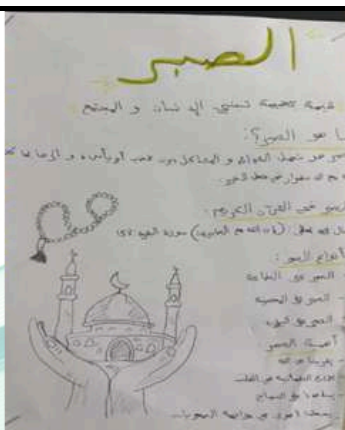 الصبر
قيمة عظيمة تبني الإنسان و المجتمع
ما هو الصبر؟:
هو تحمل الصعاب و المشاكل بدون غضب أو يأس و الرضا بما
مع الاستمرار في فعل الخير.
الصبر في القرآن الكريم:
قال الله تعالى: (إن الله مع الصابرين) سورة البقرة: 153
أنواع الصبر:
- الصبر على الطاعة
- الصبر عن المعصية
- الصبر على البلاء
أهمية الصبر:
- يقربنا من الله
- يزرع الطمأنينة في القلب
- يساعدنا على النجاح
- يجعلنا أقوى في مواجهة الصعوبات.